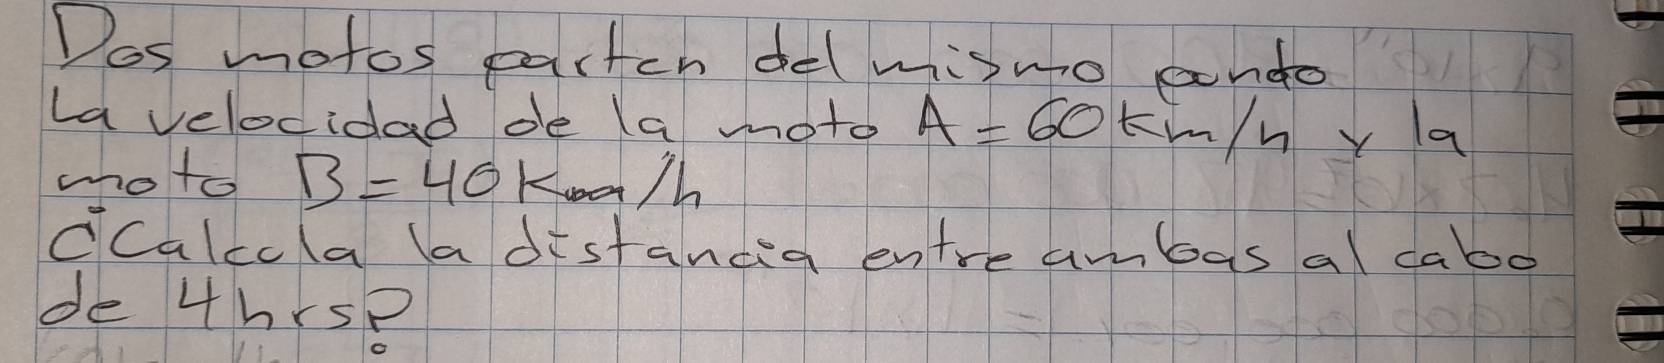 Dos motos parten del mismo punto
La velocidad de la moto A = 60 Km/h y la
moto B = 40 Km/h
¿Calcula la distancia entre ambas al cabo
de 4 hrs?